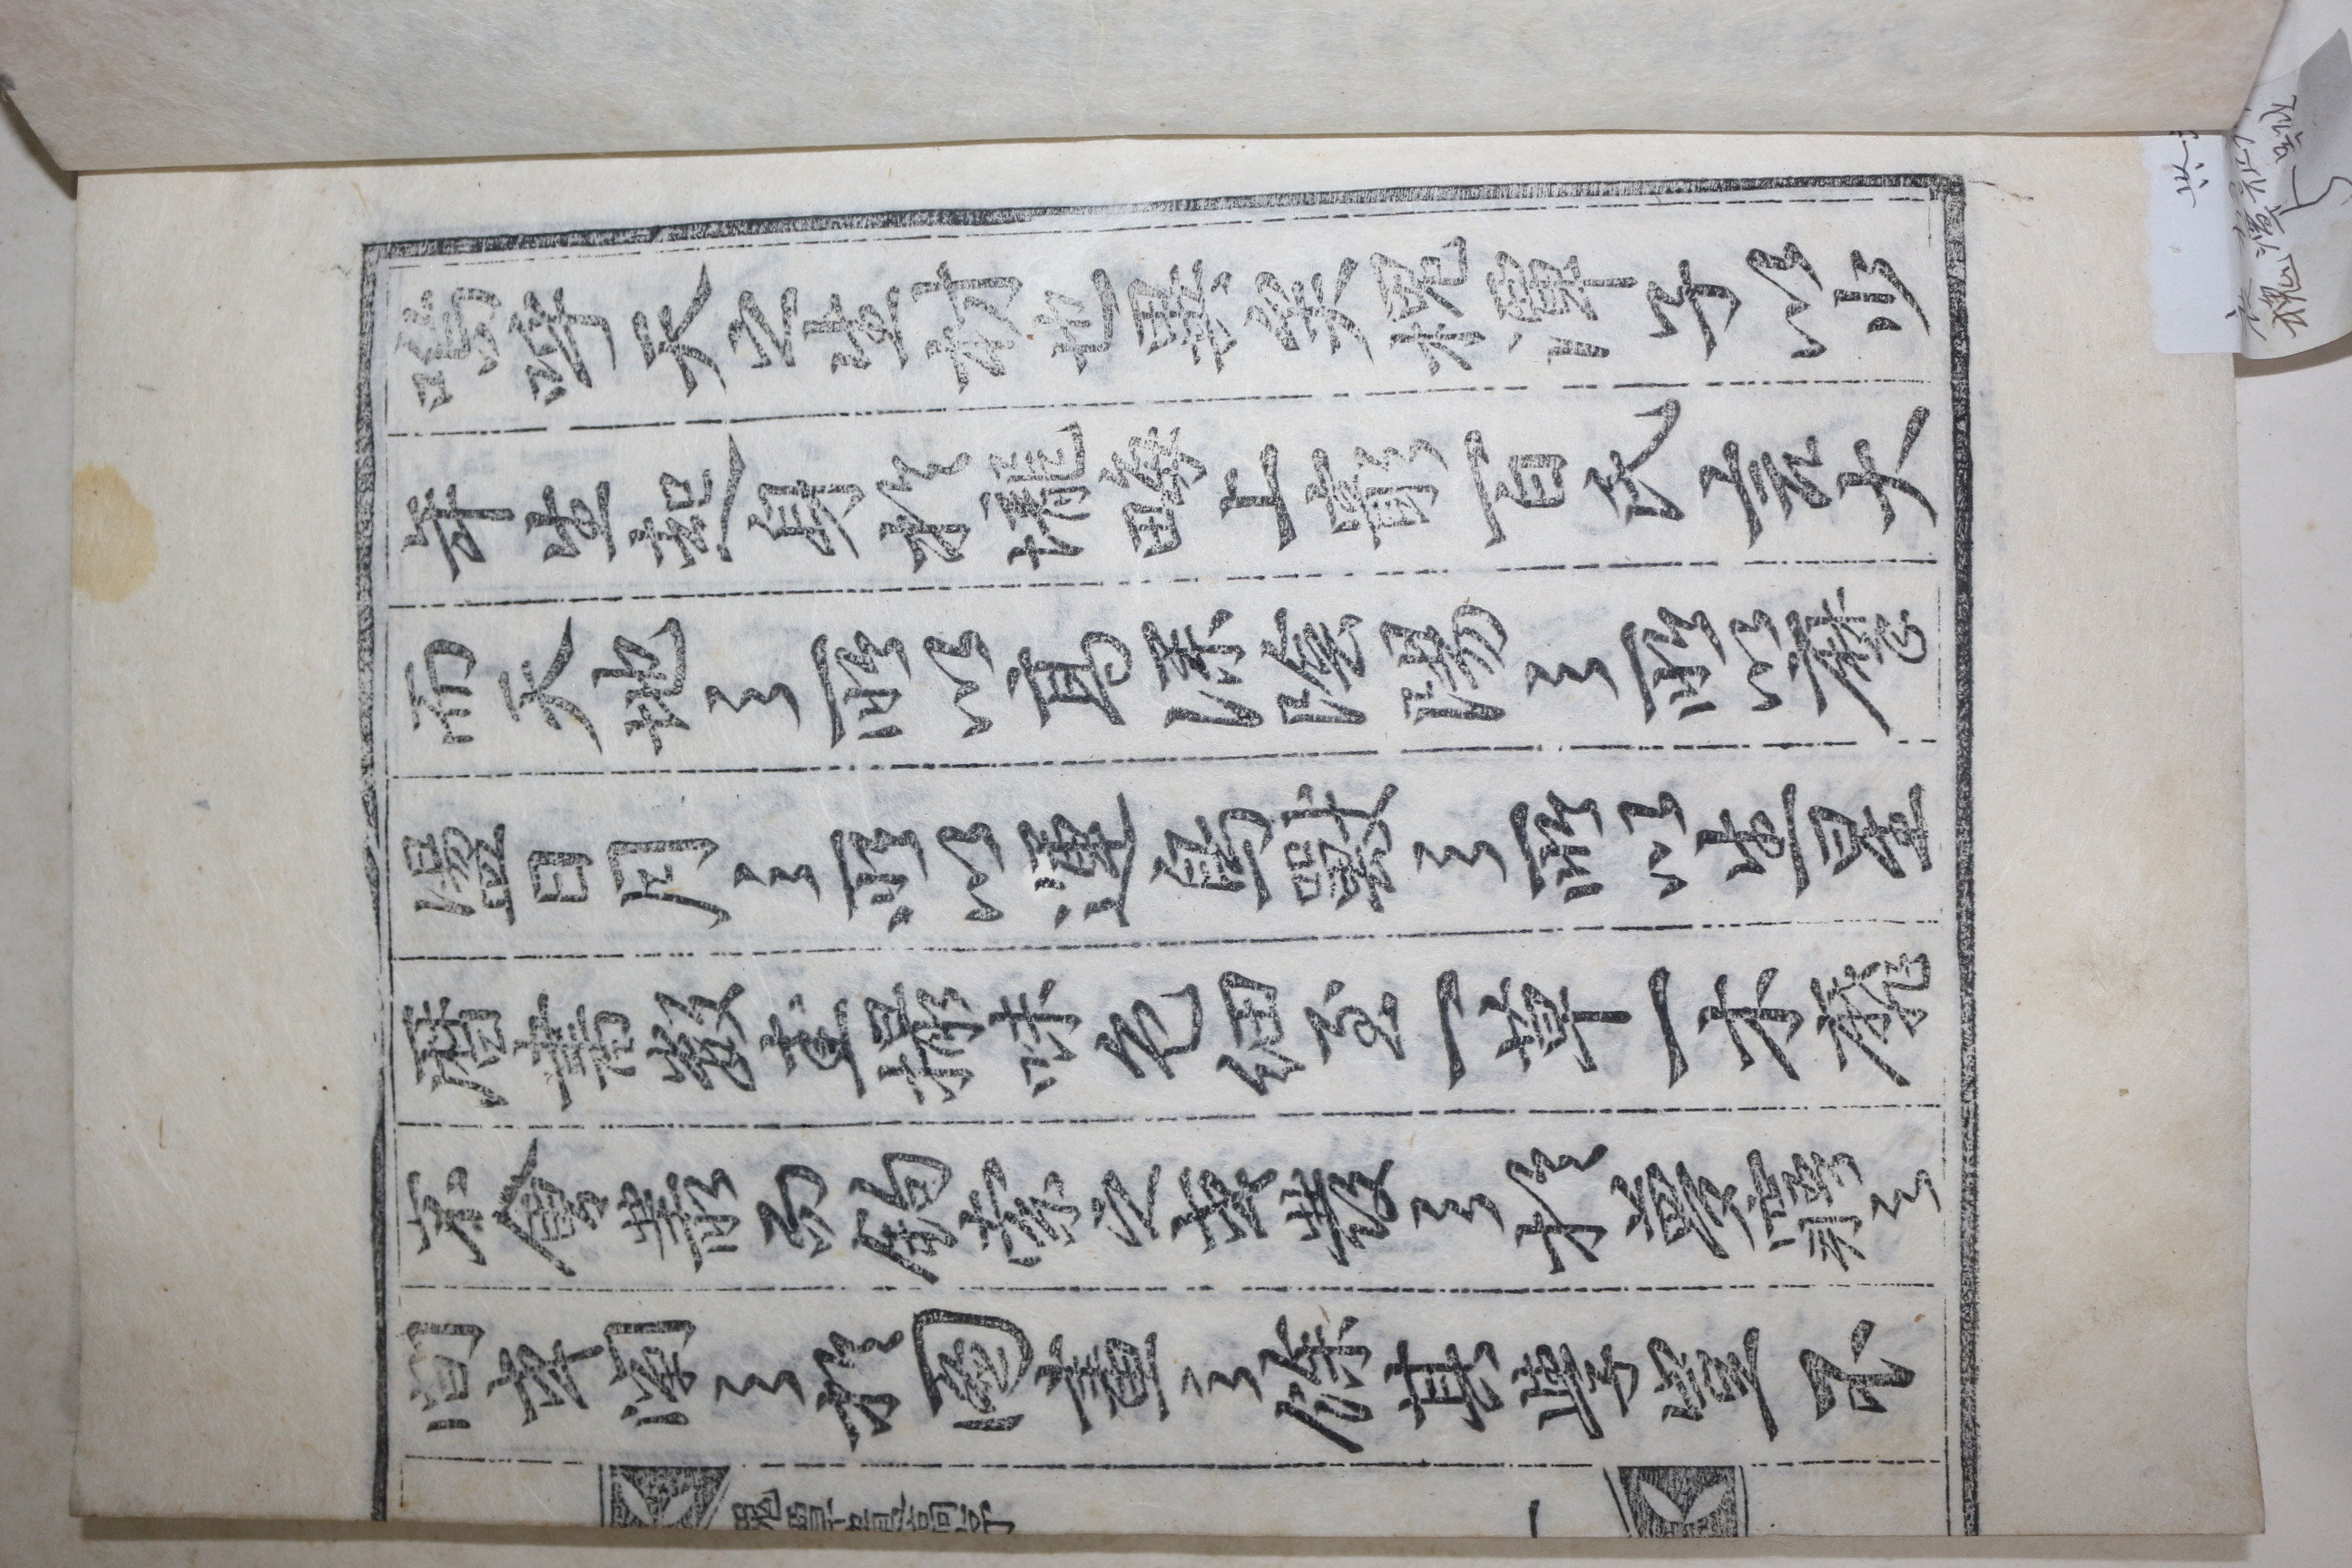 嗚呼天之生材也異矣槐潭子以少
年生起身於壠畮上窮百氏言大
而天地之所以高深陰陽之所以摩
盪日月之所以運鳥獸之所以生星
曆書數圭撮味色細至一草一木靡
不會叢而鉤索之或發之於夢寤之
間卒闡之於圖畫之餘其學豈不
槐潭遺稿序
一
槐潭